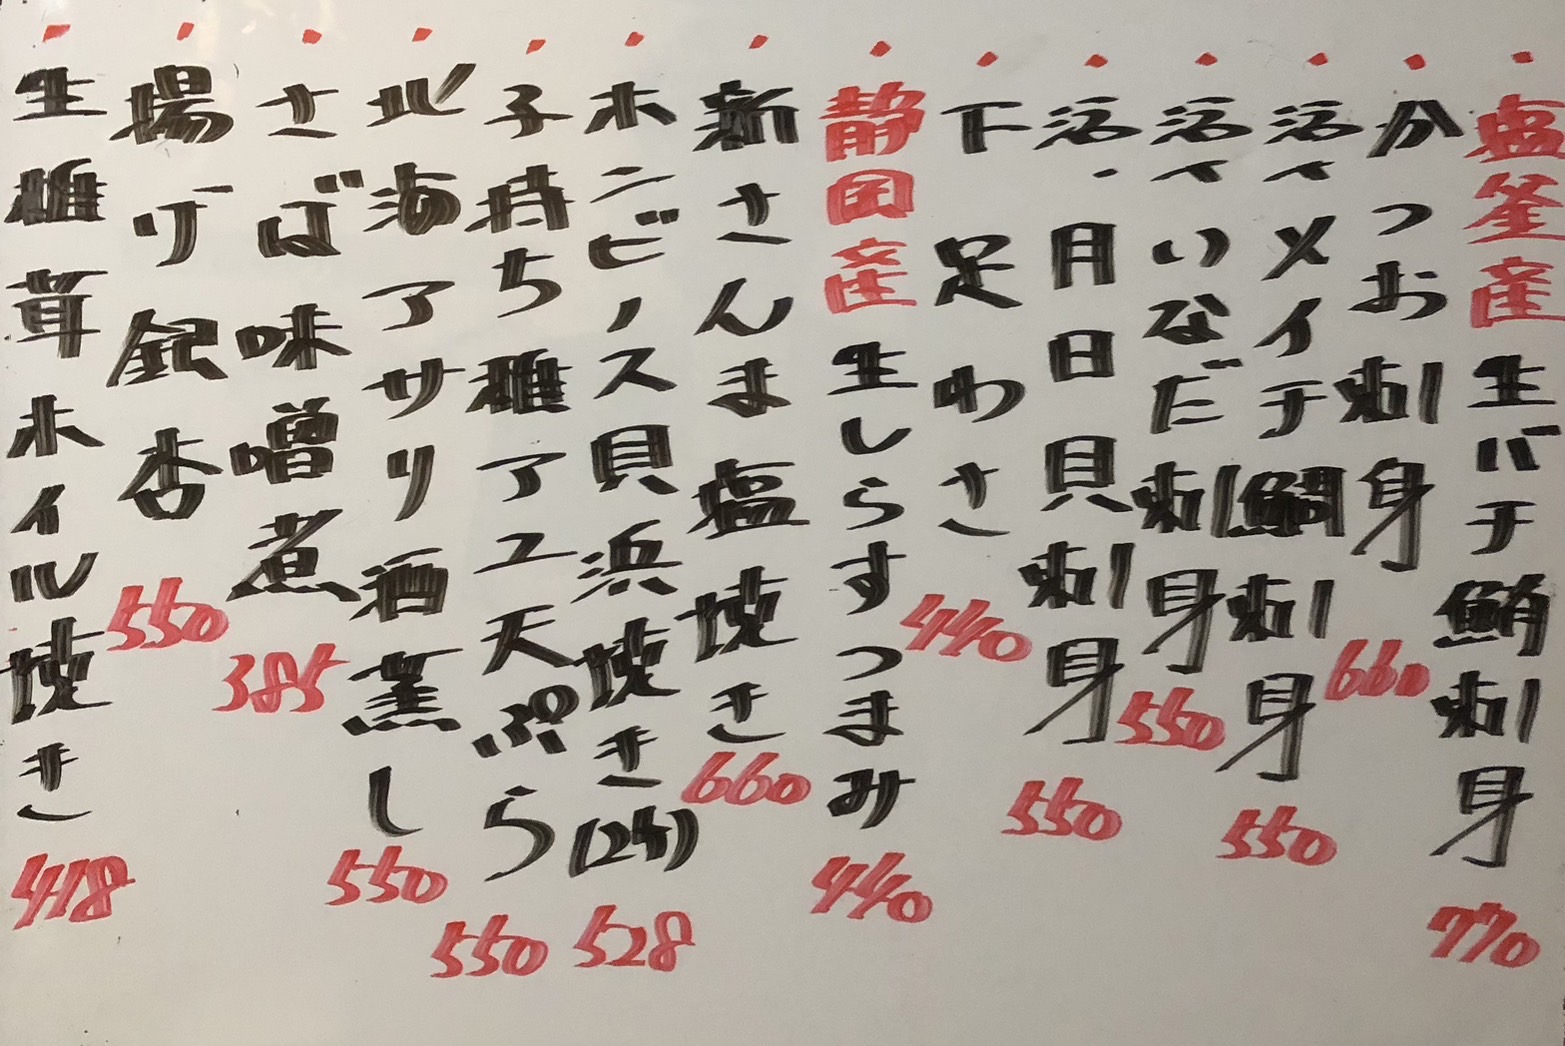 ・塩釜産生バチ鮪刺身 770
・かつお刺身 660
・活〆メイチ鯛刺身 550
・活〆いなだ刺身 550
・活・月日貝刺身 550
・下足わさ 440
・静岡産生しらすつまみ 440
・新さんま塩焼き 660
・ホンビノス貝浜焼き(2ケ) 528
・子持ち稚アユ天ぷら 550
・北海アサリ酒蒸し 550
・さば味噌煮 385
・揚げ銀杏 550
・生椎茸ホイル焼き 418